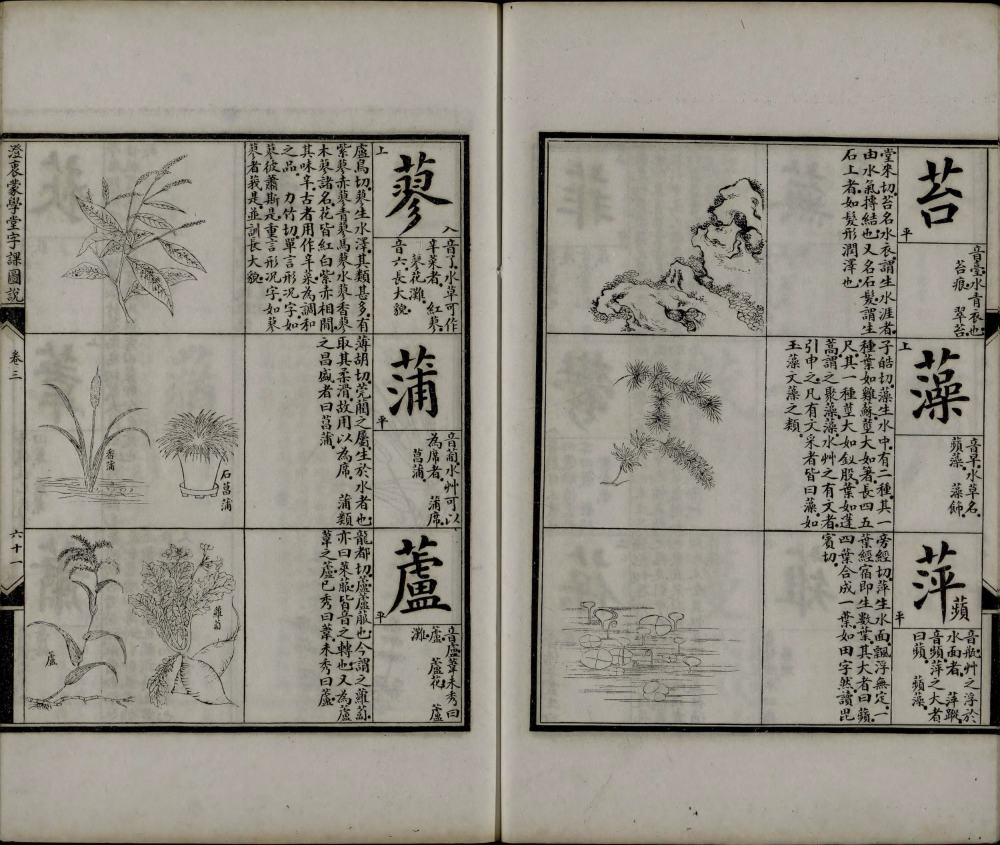 苔
平
音臺水青衣也
苔痕 翠苔
堂來切苔名水衣謂生水涯者
由水氣摶結也又名石髮謂生
石上者如髮形潤澤也
藻
上
音早水草名
蘋藻 藻飾
子皓切藻生水中有二種其一
種葉如雞蘇莖大如箸長四五
尺其一種莖大如釵股葉如蓬
蒿謂之聚藻藻水艸之有文者
引申之凡有文采者皆曰藻如
玉藻文藻之類
萍
蘋
平
音瓶艸之浮於
水面者 萍蹤
音蘋萍之大者
曰蘋 蘋藻
旁經切萍生水面飄浮無定一
葉經宿即生數葉其大者曰蘋
四葉合成一葉如田字然讀毘
賓切
蓼
上
入
音了水草可作
辛菜者 紅蓼
蓼花灘
音六長大貌
盧鳥切蓼生水澤其類甚多有
紫蓼赤蓼青蓼馬蓼水蓼香蓼
木蓼諸名花皆紅白紫赤相間
其味辛古者用作辛菜為調和
之品 力竹切單言形况字如
蓼彼蕭斯是重言形况字如蓼
蓼者莪是並訓長大貌
蒲
平
音葡水艸可以
為席者 蒲席
菖蒲
薄胡切莞藺之屬生於水者也
取其柔滑故用以為席 蒲類
之昌盛者曰菖蒲
香蒲
石菖蒲
蘆
平
音盧葦未秀曰
蘆 蘆花 蘆
灘
龍都切蘆蘆菔也今謂之蘿蔔
亦曰萊菔皆音之轉也又為蘆
葦之蘆已秀曰葦未秀曰蘆
蘿蔔
蘆
澄衷蒙學堂字課圖說
卷三
六十一